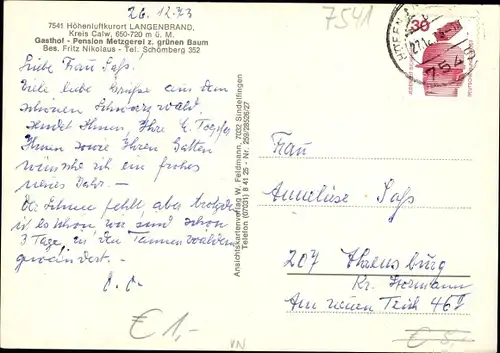 26.12.73
7541
7541 Höhenluftkurort LANGENBRAND,
Kreis Calw, 650-720 m ü. M.
Gasthof - Pension Metzgerei z. grünen Baum
Bes. Fritz Nikolaus - Tel. Schömberg 352
30
754
Liebe Frau Saß.
Viele liebe Grüße aus dem
schönen Schwarzwald
sendet Ihnen, Ihre E. Töpfer
Ihnen sowie Ihren Gatten
wünsche ich ein frohes
neues Jahr. —
Der Schnee fehlt, aber trotzdem
ist es schön, wir sind schon
3 Tage, in den Tannenwäldern
gewandert. —
D. O.
Ansichtskartenverlag W. Feldmann, 7032 Sindelfingen
Telefon (07031) 8 41 25 - Nr. 259/28526/27
Frau
Anneliese Saß
207 Ahrensburg
Kr. Stormarn
Am neuen Teich 46
€ 1,-
VN
€ 8,-